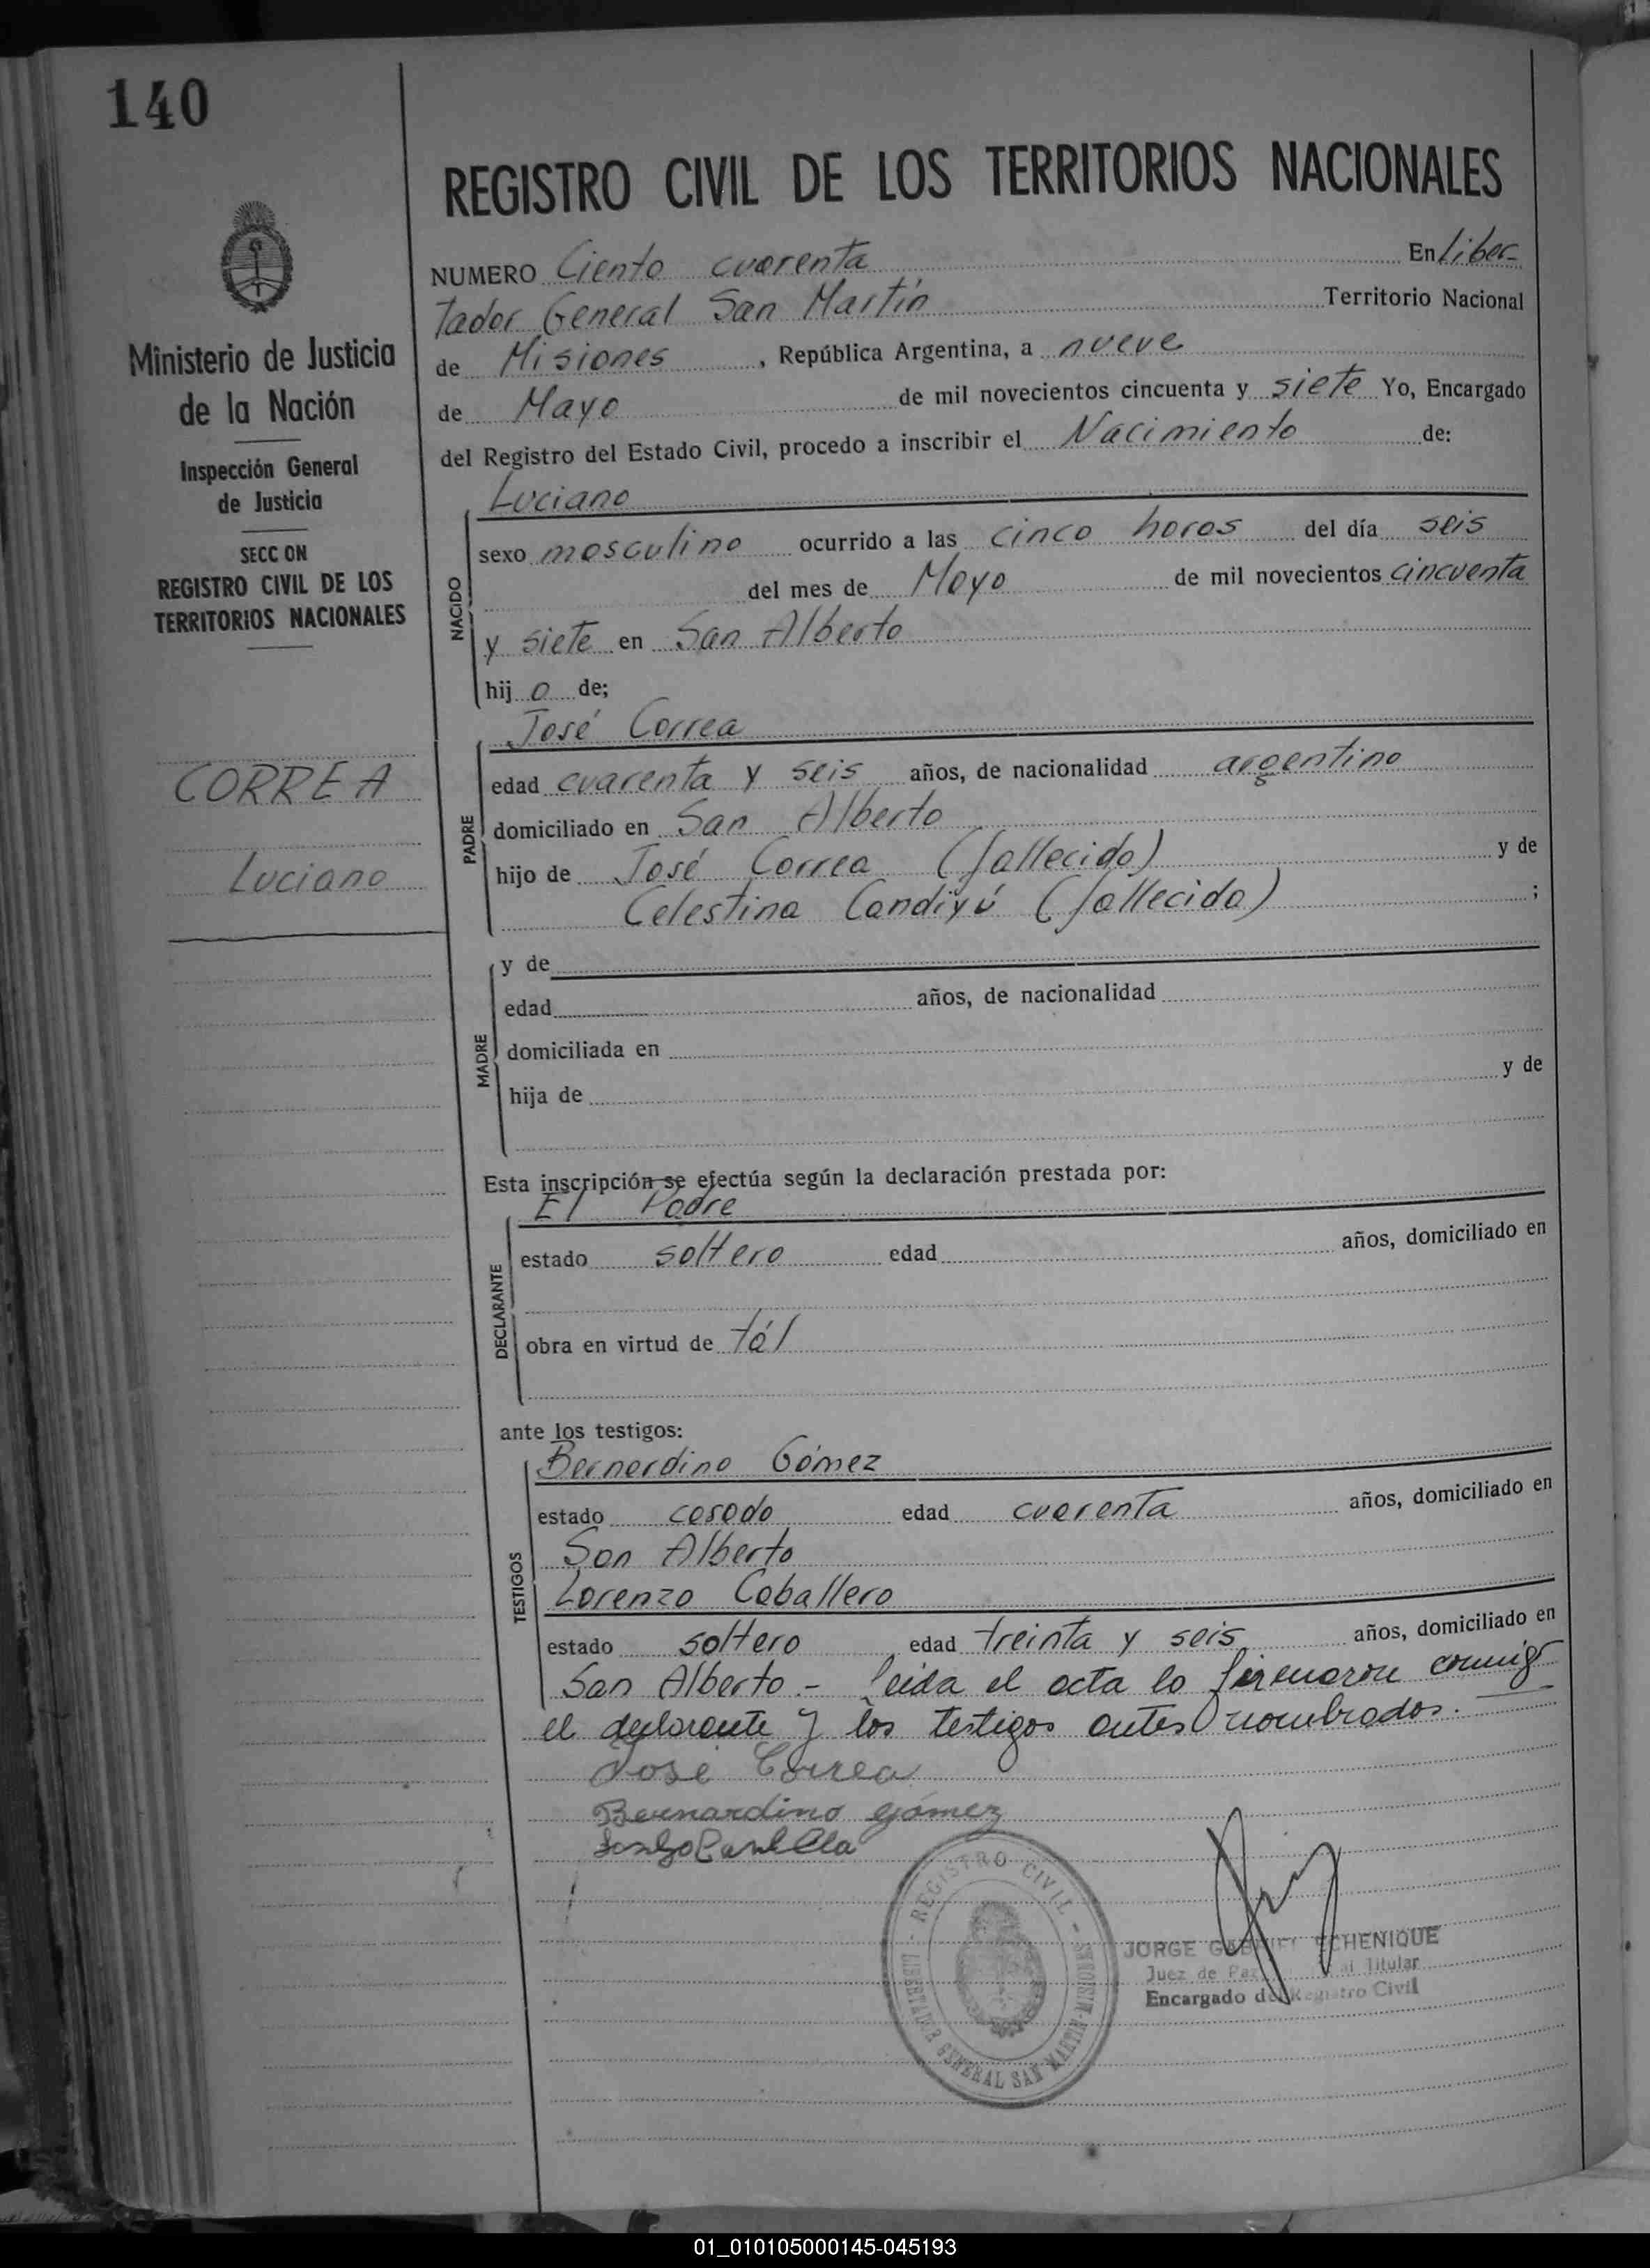 140
REGISTRO CIVIL DE LOS TERRITORIOS NACIONALES
NUMERO Ciento cuarenta En Liber-
tador General San Martín Territorio Nacional
de Misiones, República Argentina, a nueve
de Mayo de mil novecientos cincuenta y siete Yo, Encargado
del Registro del Estado Civil, procedo a inscribir el Nacimiento de:
Ministerio de Justicia
de la Nación
Inspección General
de Justicia
SECC ON
REGISTRO CIVIL DE LOS
TERRITORIOS NACIONALES
CORREA
Luciano
NACIDO
Luciano
sexo masculino ocurrido a las cinco horas del día seis
del mes de Mayo de mil novecientos cincuenta
y siete en San Alberto
hij o de;
PADRE
José Correa
edad cuarenta y seis años, de nacionalidad argentino
domiciliado en San Alberto
hijo de José Correa (fallecido) y de
Celestina Candiyú (fallecida) ;
MADRE
y de
edad años, de nacionalidad
domiciliada en
hija de y de
Esta inscripción se efectúa según la declaración prestada por:
DECLARANTE
El Padre
estado soltero edad años, domiciliado en
obra en virtud de tál
ante los testigos:
TESTIGOS
Bernardino Gómez
estado casado edad cuarenta años, domiciliado en
San Alberto
Lorenzo Caballero
estado soltero edad treinta y seis años, domiciliado en
San Alberto.- Leida el acta la firmaron conmigo
el declarante y los testigos antes nombrados.
José Correa
Bernardino Gómez
- REGISTRO CIVIL -
LIBERTADOR GENERAL SAN MARTIN-MISIONES
JORGE GABRIEL ECHENIQUE
Juez de Paz Titular
Encargado del Registro Civil
01_010105000145-045193